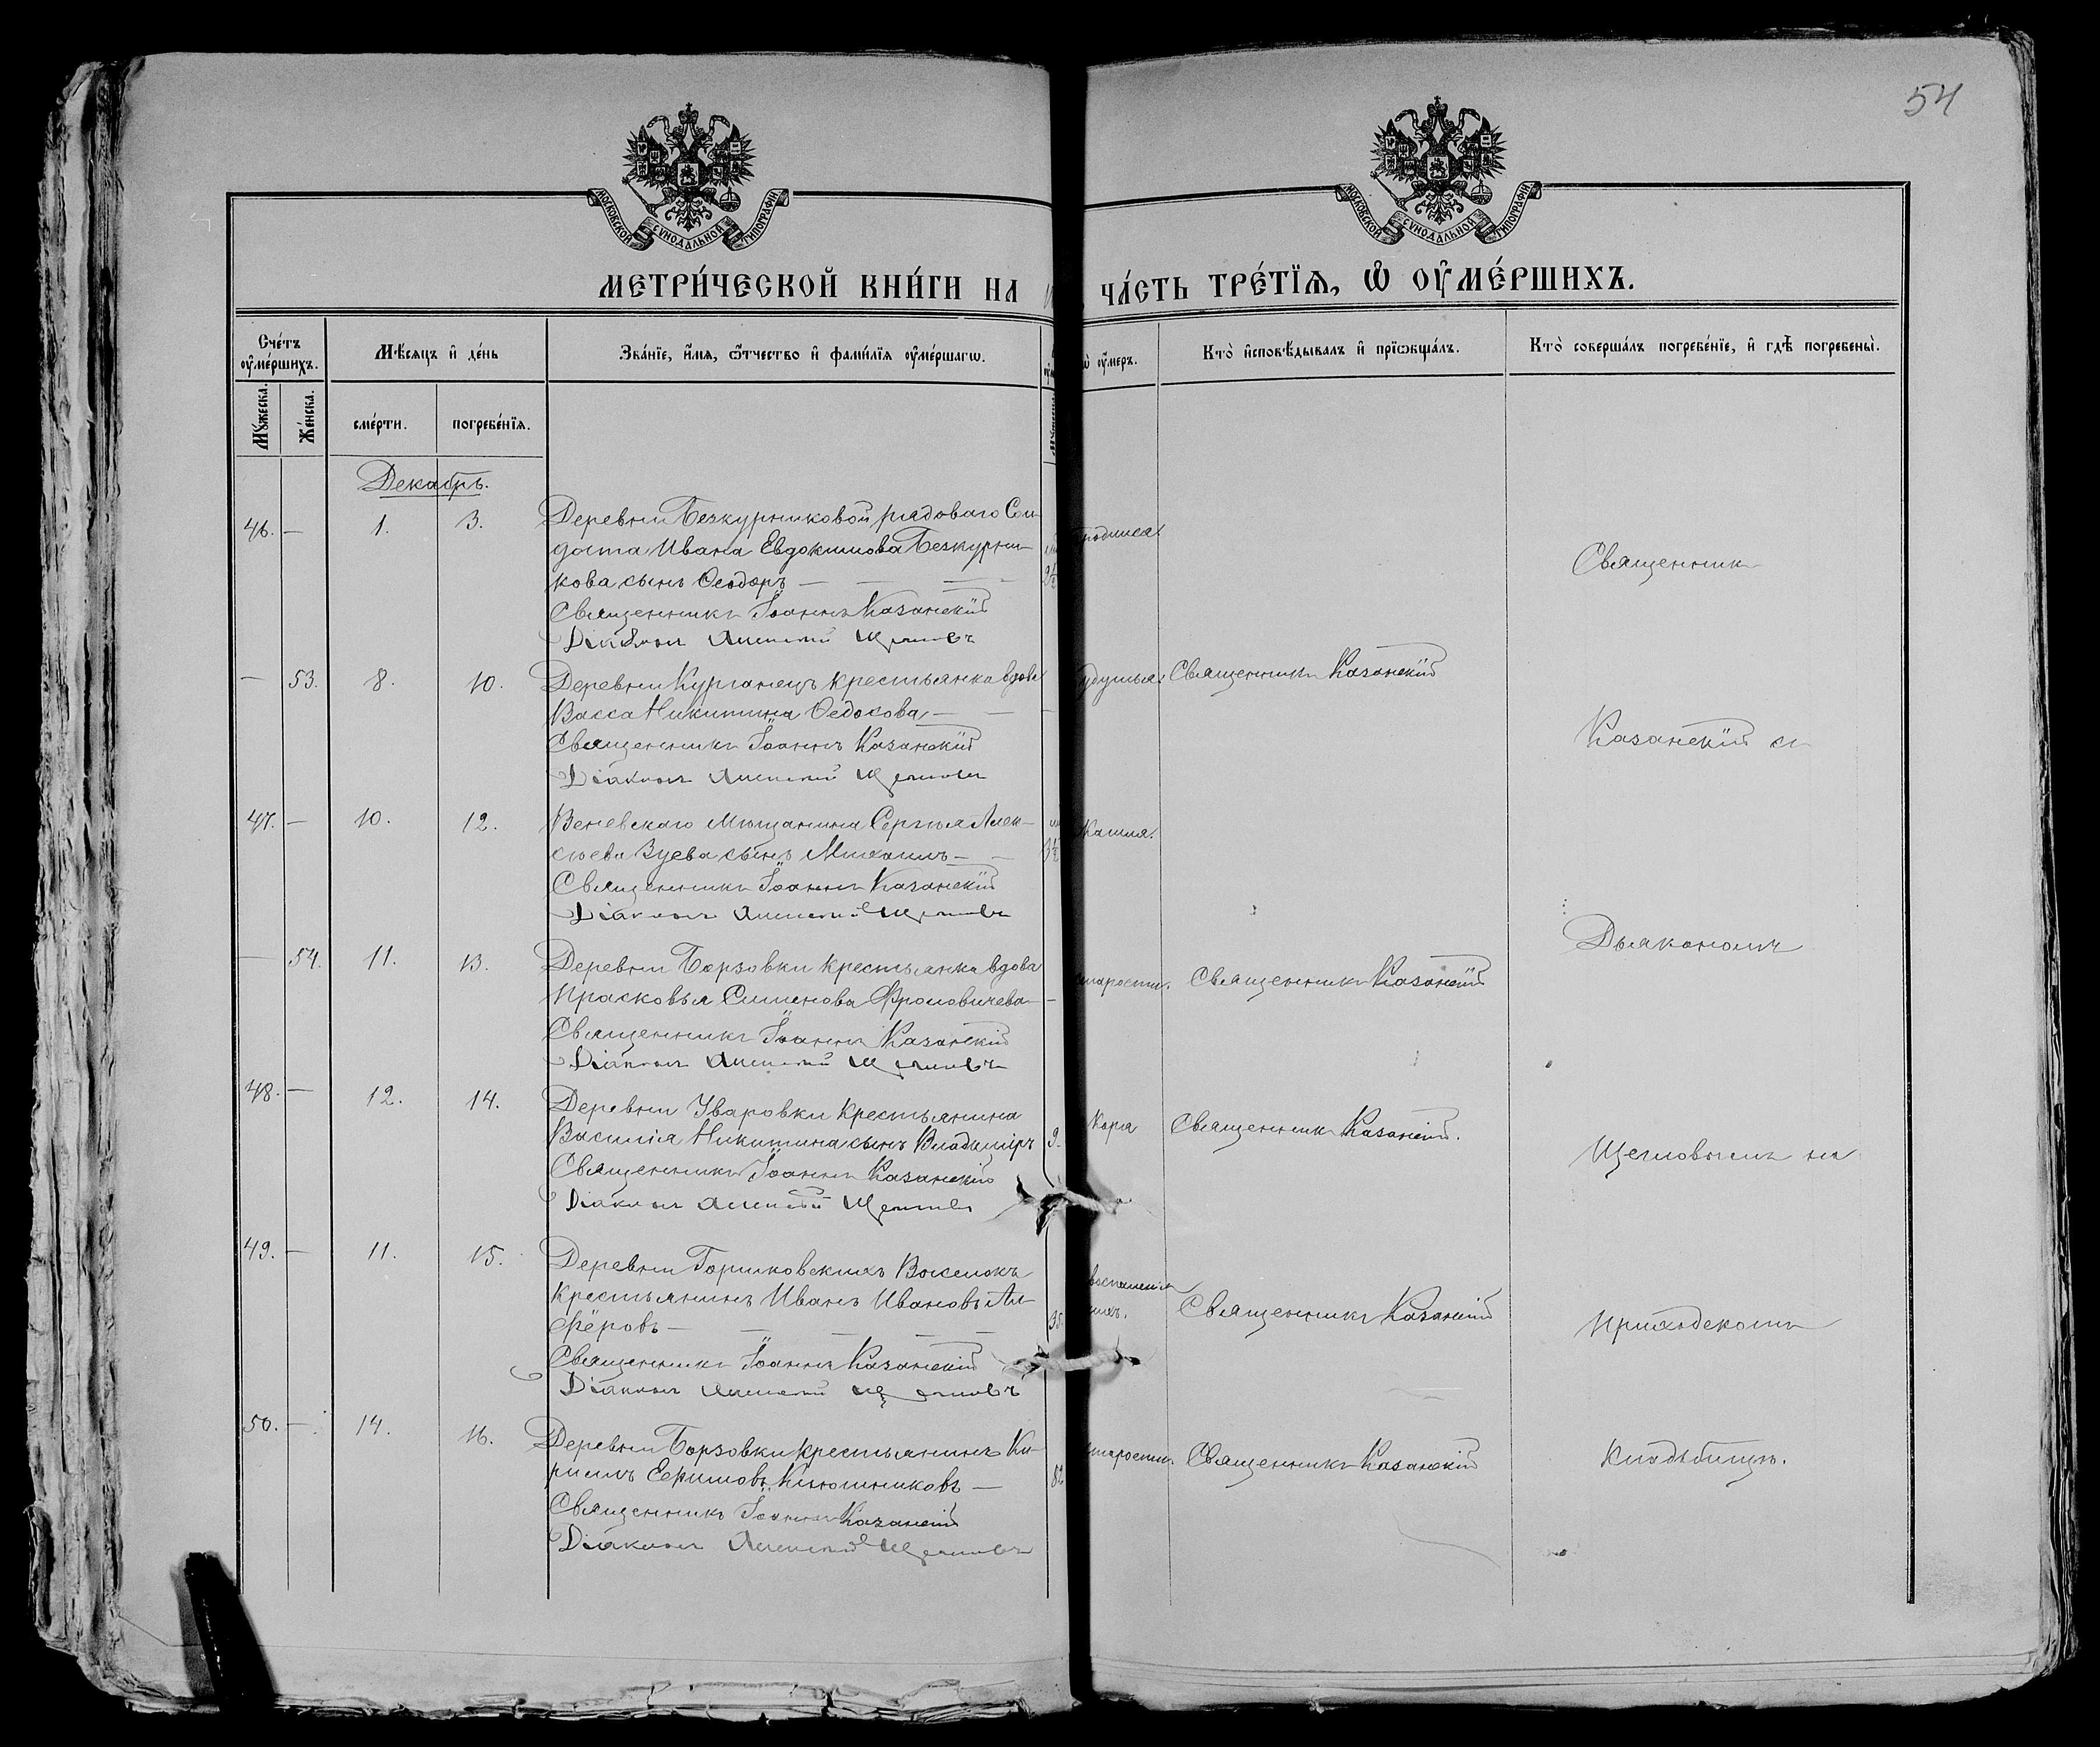 54
МОСКОВСКОЙ СУНОДАЛЬНОЙ ТИПОГРАФІИ
МОСКОВСКОЙ СУНОДАЛЬНОЙ ТИПОГРАФІИ
МЕТРИ́ЧЕСКОЙ КНИ́ГИ НА ЧА́СТЬ ТРЕ́ТЇѦ, Ѡ ОУ҆МЕ́РШИХЪ.
Сче́тъ оу҆ме́ршихъ.
Мꙋжеска.
Же́нска.
Мѣ́сѧцъ и҆ де́нь
сме́рти.
погребе́нїѧ.
Зва́нїе, и҆́мѧ, ѻ҆́тчество и҆ фами́лїѧ оу҆ме́ршагѡ.
оу҆́меръ.
Кто̀ и҆сповѣ́дывалъ и҆ прїѡбща́лъ.
Кто̀ соверша́лъ погребе́нїе, и҆ гдѣ̀ погребены̀.
Декабрь.
46. — 1. 3.
Деревни Безкурниковой рядоваго Сол-
дата Ивана Евдокимова Безкурни-
кова сынъ Ѳеодоръ —
Священникъ Іоаннъ Казанскій
Діаконъ Щегловъ
— 53. 8. 10.
Деревни Курганецъ крестьянка вдова
Васса Никитина Ѳедосова —
Священникъ Іоаннъ Казанскій
Діаконъ Щегловъ
Священникъ Казанскій
47. — 10. 12.
Веневскаго мѣщанина Сергѣя Алек-
сѣева Зуева сынъ Михаилъ —
Священникъ Іоаннъ Казанскій
Діаконъ Щегловъ
Кашля.
— 54. 11. 13.
Деревни Борзовки крестьянка вдова
Прасковья Симонова Фроловичева —
Священникъ Іоаннъ Казанскій
Діаконъ Щегловъ
старости. Священникъ Казанскій
48. — 12. 14.
Деревни Уваровки крестьянина
Василія Никитина сынъ Владиміръ
9.
Священникъ Іоаннъ Казанскій
Діаконъ Щегловъ
Кори Священникъ Казанскій.
49. — 11. 15.
Деревни Горшковскихъ Выселокъ
крестьянинъ Иванъ Ивановъ Ал-
фёровъ —
Священникъ Іоаннъ Казанскій
Діаконъ Щегловъ
воспаленія
Священникъ Казанскій
50. — 14. 16.
Деревни Борзовки крестьянинъ Ки-
риллъ Ефимовъ Клюшниковъ —
82
Священникъ Іоаннъ Казанскій
Діаконъ Щегловъ
старости. Священникъ Казанскій
Священникъ
Казанскій съ
Дьякономъ
Щегловымъ на
приходскомъ
кладбищѣ.